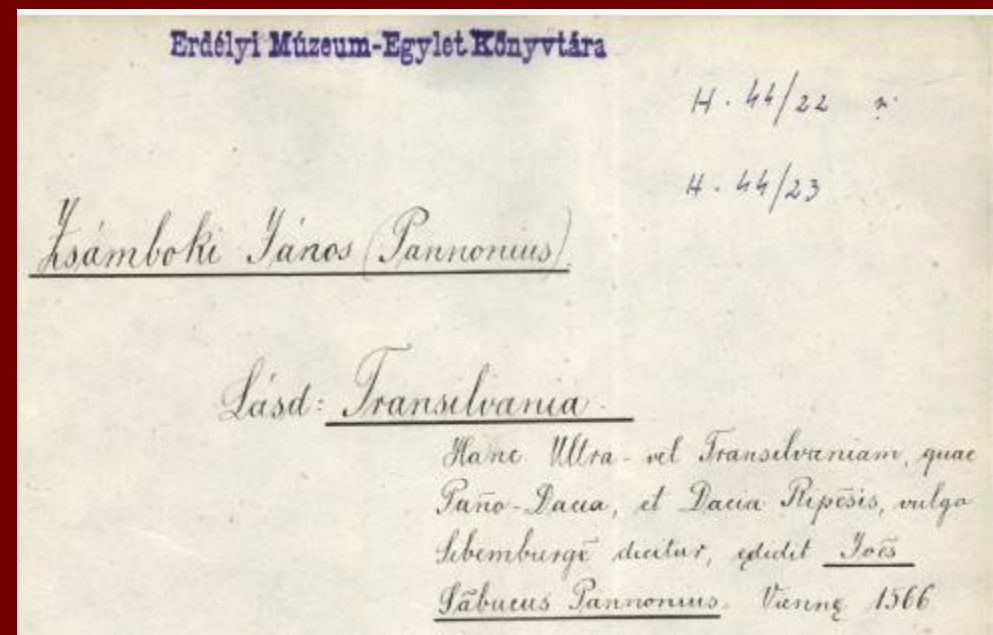 Erdélyi Múzeum-Egylet Könyvtára
H. 44/22 r.
H. 44/23
Zsámboki János (Pannonius).
Lásd: Transilvania.
Hanc Ultra- vel Transilvaniam, quae
Pan̄o-Dacia, et Dacia Ripēsis, vulgo
Sibemburgē dicitur, ędidit Joēs
Sābucus Pannonius. Viennę 1566